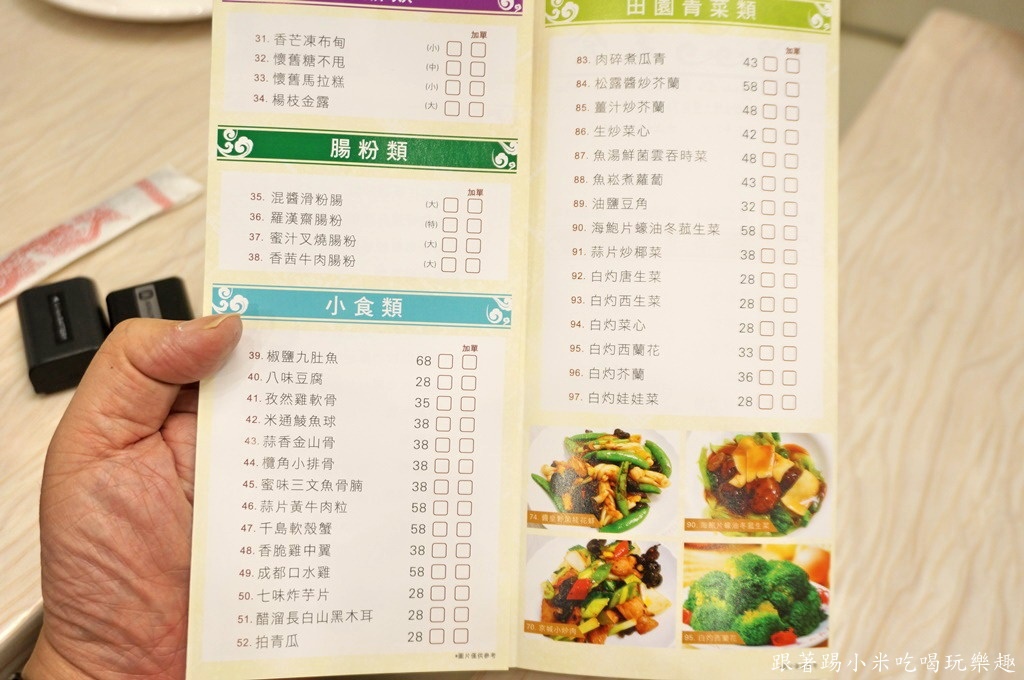 加單
31. 香芒凍布甸 (小)
32. 懷舊糖不甩 (中)
33. 懷舊馬拉糕 (小)
34. 楊枝金露 (大)
腸粉類
加單
35. 混醬滑粉腸 (大)
36. 羅漢齋腸粉 (特)
37. 蜜汁叉燒腸粉 (大)
38. 香茜牛肉腸粉 (大)
小食類
加單
39. 椒鹽九肚魚 68
40. 八味豆腐 28
41. 孜然雞軟骨 35
42. 米通鯪魚球 38
43. 蒜香金山骨 38
44. 欖角小排骨 38
45. 蜜味三文魚骨腩 38
46. 蒜片黃牛肉粒 58
47. 千島軟殼蟹 58
48. 香脆雞中翼 38
49. 成都口水雞 58
50. 七味炸芋片 28
51. 醋溜長白山黑木耳 28
52. 拍青瓜 28
*圖片僅供參考
田園青菜類
加單
83. 肉碎煮瓜青 43
84. 松露醬炒芥蘭 58
85. 薑汁炒芥蘭 48
86. 生炒菜心 42
87. 魚湯鮮菌雲吞時菜 48
88. 魚崧煮蘿蔔 43
89. 油鹽豆角 32
90. 海鮑片蠔油冬菰生菜 58
91. 蒜片炒椰菜 38
92. 白灼唐生菜 28
93. 白灼西生菜 28
94. 白灼菜心 28
95. 白灼西蘭花 33
96. 白灼芥蘭 36
97. 白灼娃娃菜 28
90. 海鮑片蠔油冬菰生菜
跟著踢小米吃喝玩樂趣